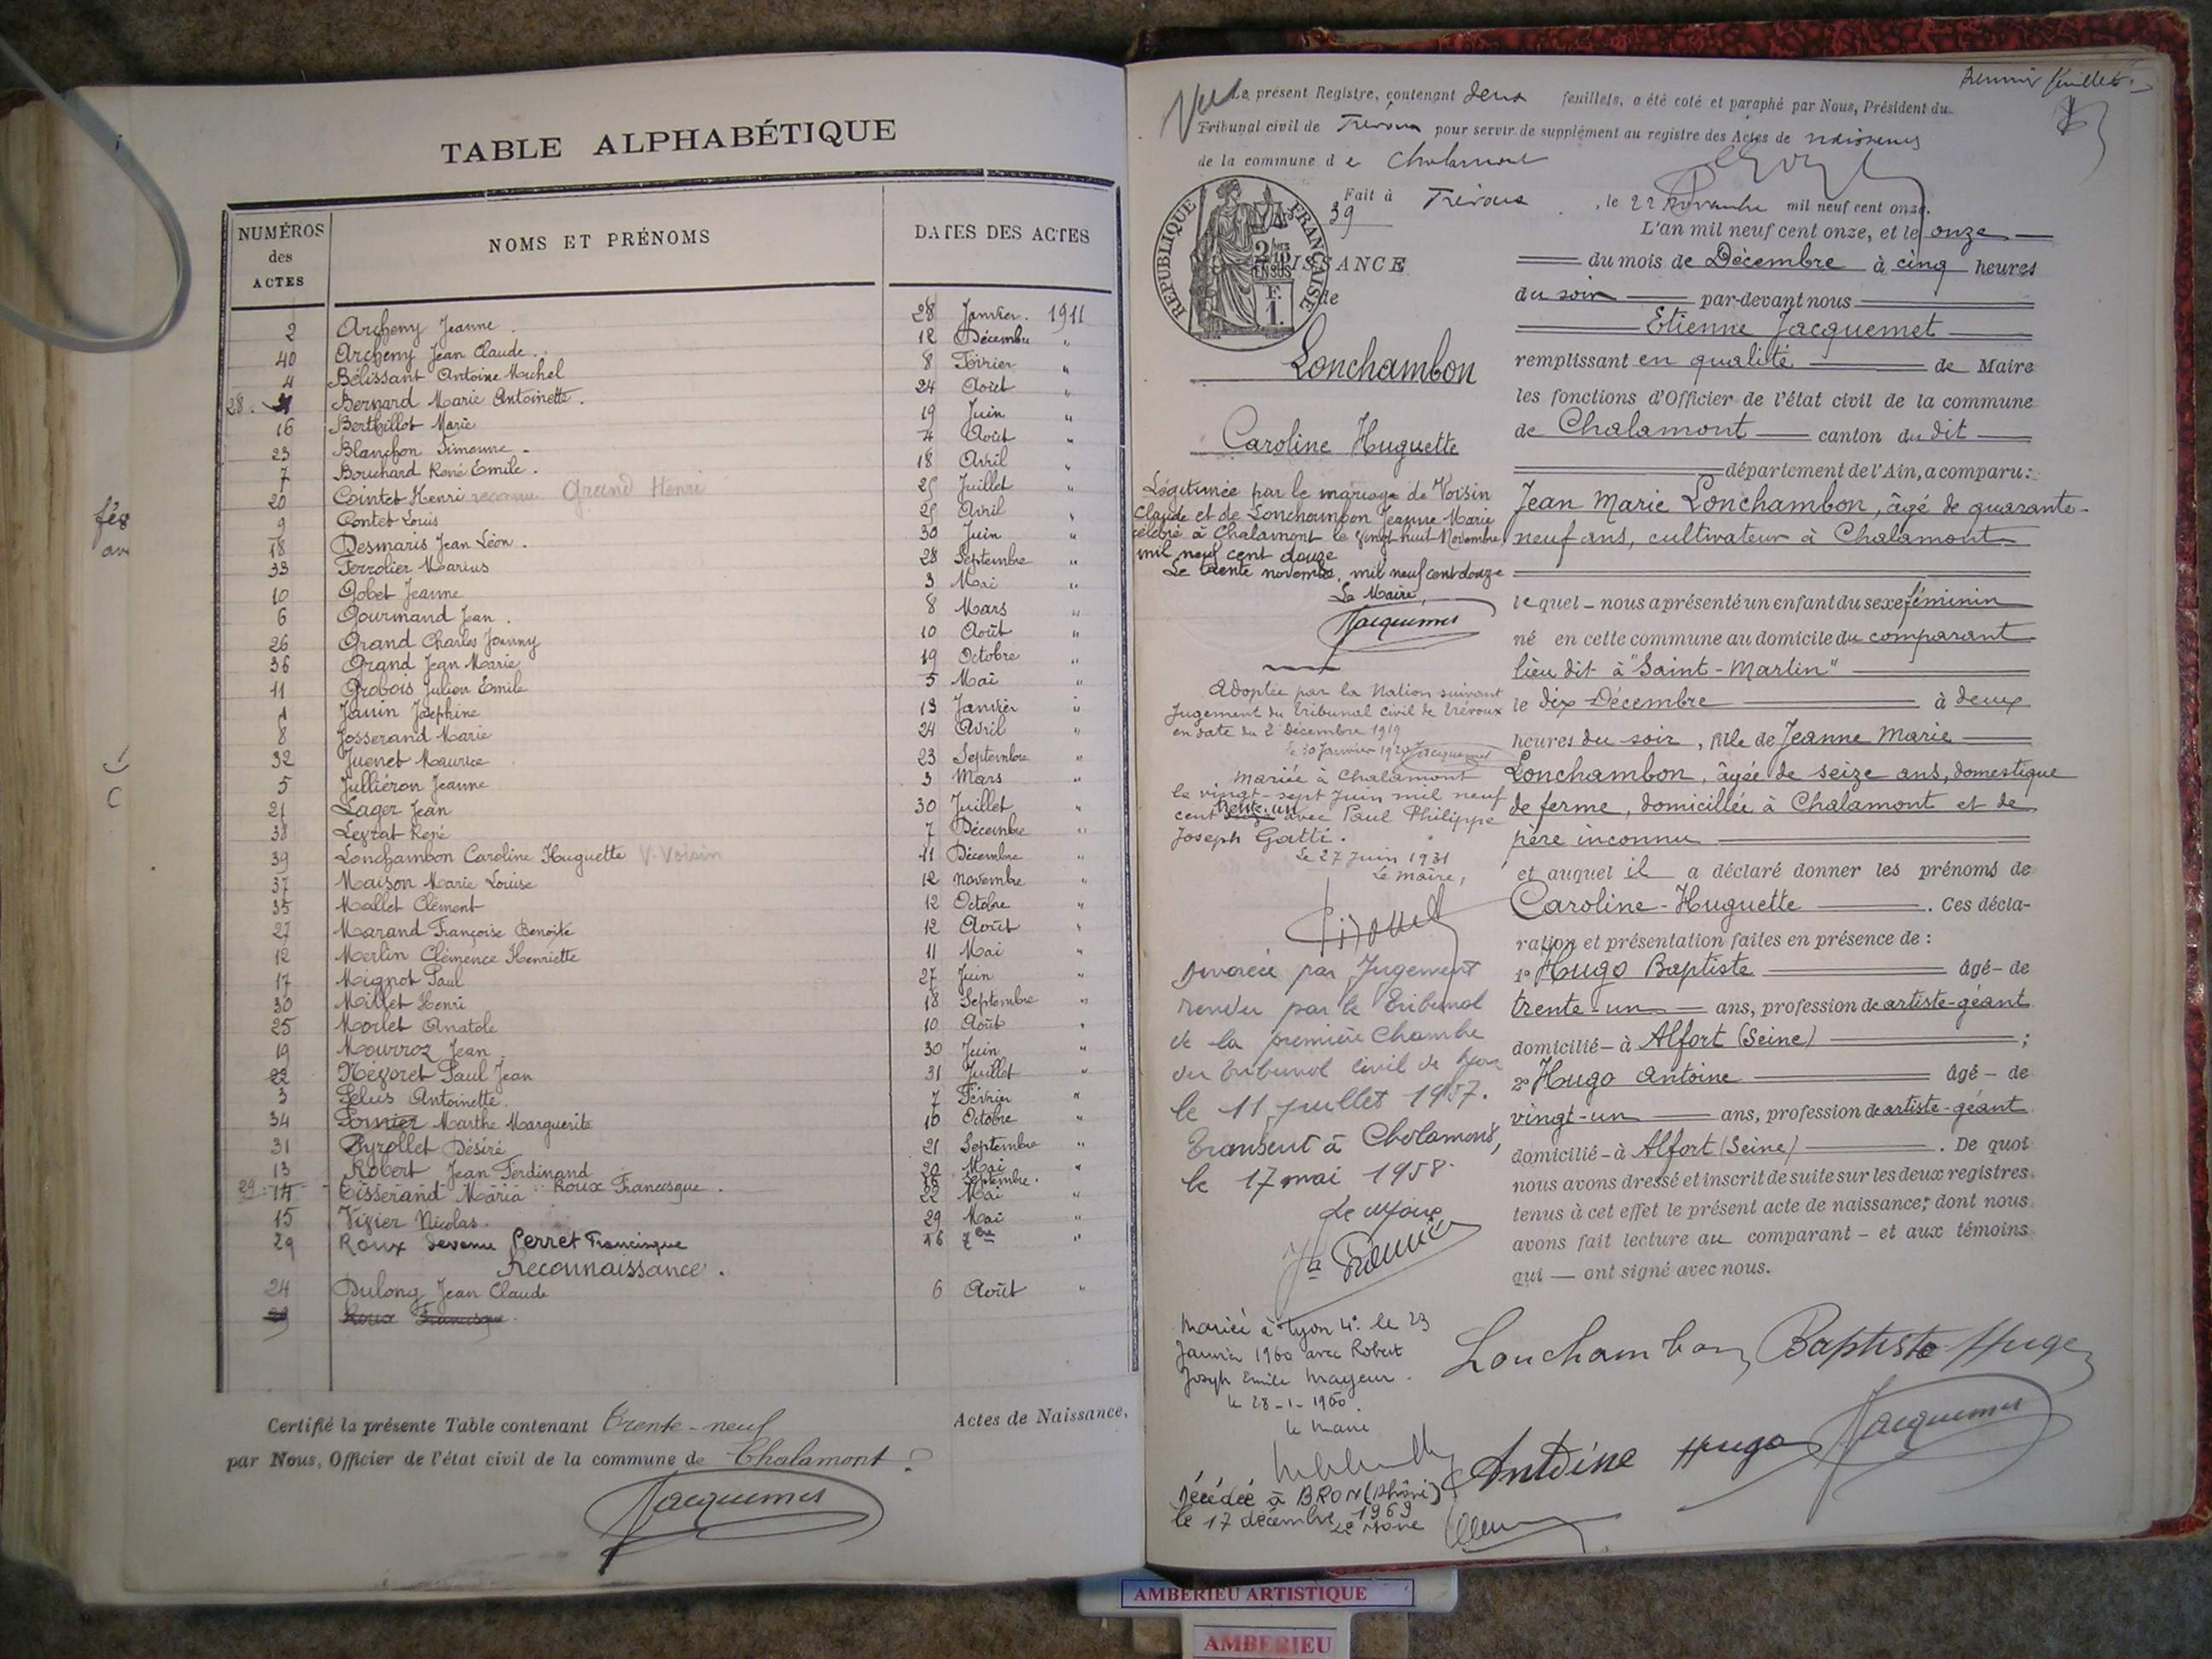 TABLE ALPHABÉTIQUE
NUMÉROS des ACTES
NOMS ET PRÉNOMS
DATES DES ACTES
2 Archeny Jeanne. 28 Janvier. 1911
40 Archeny Jean Claude. 12 Décembre "
4 Bélissant Antoine Michel 8 Février "
28. Bernard Marie Antoinette. 24 Août "
16 Berthillot Marie 19 Juin "
23 Blanchon Simonne. 4 Août "
7 Bouchard René Emile. 18 Avril "
20 Cointet Henri reconnu Grand Henri 25 Juillet "
9 Contet Louis 25 Avril "
18 Desmaris Jean Léon. 30 Juin "
33 Ferrolier Marius 28 Septembre "
10 Gobet Jeanne 3 Mai "
6 Gourmand Jean. 8 Mars "
26 Grand Charles Joanny 10 Août "
36 Grand Jean Marie 19 Octobre "
11 Grobois Julien Emile 5 Mai "
1 Janin Joséphine 13 Janvier "
8 Josserand Marie 24 Avril "
32 Juenet Maurice 23 Septembre "
5 Julliéron Jeanne 3 Mars "
21 Lager Jean 30 Juillet "
38 Leyrat René 7 Décembre "
39 Lonchambon Caroline Huguette V. Voisin 11 Décembre "
37 Maison Marie Louise 12 Novembre "
35 Mallet Clément 12 Octobre "
27 Marand Françoise Benoite 12 Août "
12 Merlin Clémence Henriette 11 Mai "
17 Mignot Paul 27 Juin "
30 Millet Henri 18 Septembre "
25 Morlet Anatole 10 Août "
19 Mourroz Jean. 30 Juin "
22 Négoret Paul Jean 31 Juillet "
3 Pelus Antoinette. 7 Février "
34 Pornier Marthe Marguerite 10 Octobre "
31 Pyrollet Désiré 21 Septembre "
13 Robert Jean Ferdinand 20 Mai "
29 Roux Francisque. 16 Septembre.
14 Tisserand Maria 22 Mai "
15 Vizier Nicolas. 29 Mai "
29 Roux devenu Perret Francisque 16 7bre "
Reconnaissance.
24 Dulong Jean Claude 6 Août "
29 Roux Francisque.
Certifié la présente Table contenant Trente-neuf Actes de Naissance,
par Nous, Officier de l'état civil de la commune de Chalamont
Jacquemet
Dernier feuillet
Vu Le présent Registre, contenant deux feuillets, a été coté et paraphé par Nous, Président du
Tribunal civil de Trévoux pour servir de supplément au registre des Actes de naissances
de la commune de Chalamont
Fait à Trévoux, le 22 Novembre mil neuf cent onze.
39
REPUBLIQUE FRANÇAISE
2/10 EN SUS
F. 1.
NAISSANCE
de
Lonchambon
Caroline Huguette
Légitimée par le mariage de Voisin
Claude et de Lonchambon Jeanne Marie
célébré à Chalamont le vingt-huit Novembre
mil neuf cent douze
Le trente novembre, mil neuf cent douze
Le Maire,
Jacquemet
Adoptée par la Nation suivant
Jugement du tribunal civil de Trévoux
en date du 2 Décembre 1919
le 30 Janvier 1920 Jacquemet
Mariée à Chalamont
le vingt-sept Juin mil neuf
cent trente-un avec Paul Philippe
Joseph Gatti.
Le 27 Juin 1931
Le maire,
Divorcée par Jugement
rendu par le Tribunal
de la première Chambre
du tribunal civil de Lyon
le 11 juillet 1957.
Transcrit à Chalamont,
le 17 mai 1958.
Le Maire
Mariée à Lyon 4e. le 23
Janvier 1960 avec Robert
Joseph Emile Mayeur.
le 28-1-1960.
le Maire
Décédée à BRON (Rhône)
le 17 décembre 1969
Le Maire
L'an mil neuf cent onze, et le onze
du mois de Décembre à cinq heures
du soir par-devant nous
Etienne Jacquemet
remplissant en qualité de Maire
les fonctions d'Officier de l'état civil de la commune
de Chalamont canton du dit
département de l'Ain, a comparu:
Jean Marie Lonchambon, âgé de quarante-
neuf ans, cultivateur à Chalamont
lequel nous a présenté un enfant du sexe féminin
né en cette commune au domicile du comparant
lieu dit à "Saint-Martin"
le dix Décembre à deux
heures du soir, fille de Jeanne Marie
Lonchambon, âgée de seize ans, domestique
de ferme, domiciliée à Chalamont et de
père inconnu
et auquel il a déclaré donner les prénoms de
Caroline-Huguette. Ces décla-
ration et présentation faites en présence de :
1o Hugo Baptiste âgé de
trente-un ans, profession de artiste-géant
domicilié à Alfort (Seine) ;
2o Hugo Antoine âgé de
vingt-un ans, profession de artiste-géant
domicilié à Alfort (Seine). De quoi
nous avons dressé et inscrit de suite sur les deux registres
tenus à cet effet le présent acte de naissance; dont nous
avons fait lecture au comparant et aux témoins
qui ont signé avec nous.
Lonchambon Baptiste Hugo
Antoine Hugo Jacquemet
AMBERIEU ARTISTIQUE
AMBERIEU